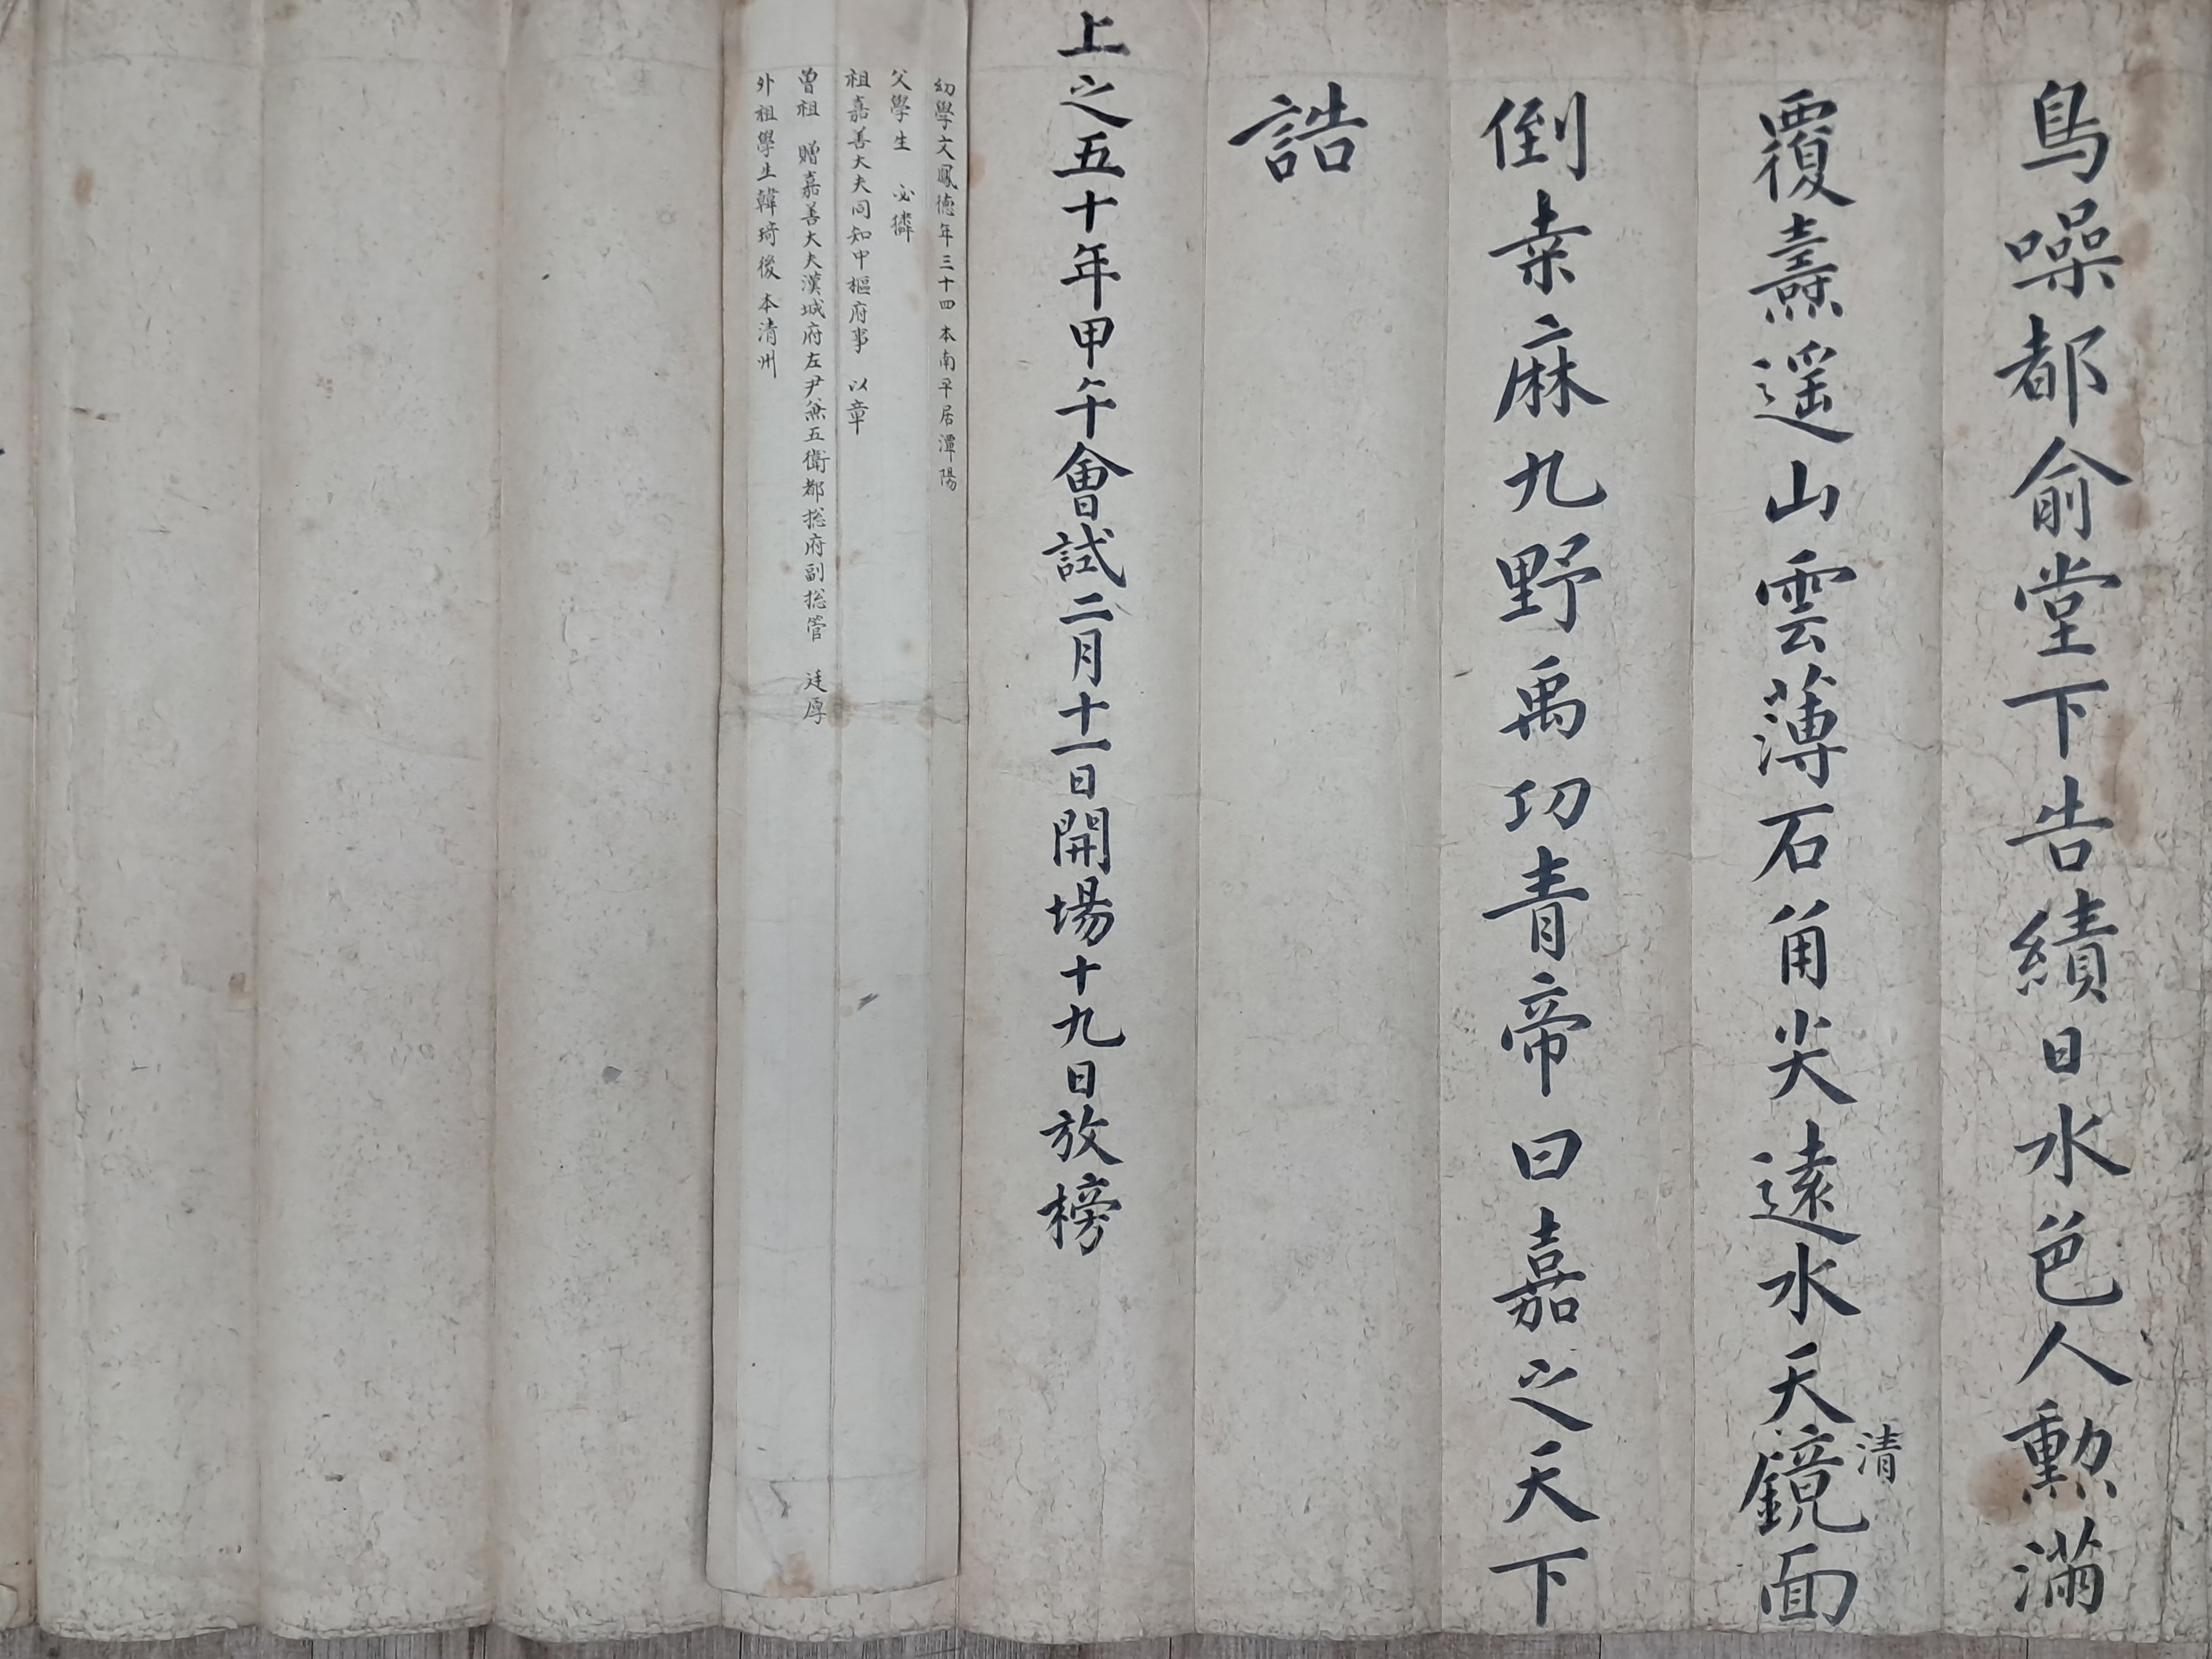 鳥噪都俞堂下告績日水色人勳滿
覆燾遥山雲薄石角尖遠水天鏡面
清
倒桒麻九野禹功青帝曰嘉之天下
誥
上之五十年甲午會試二月十一日開場十九日放榜
幼學文鳳德年三十四 本南平居潭陽
父學生 必
祖嘉善大夫同知中樞府事 以章
曾祖 贈嘉善大夫漢城府左尹兼五衛都摠府副摠管 廷厚
外祖學生韓琦後 本清州